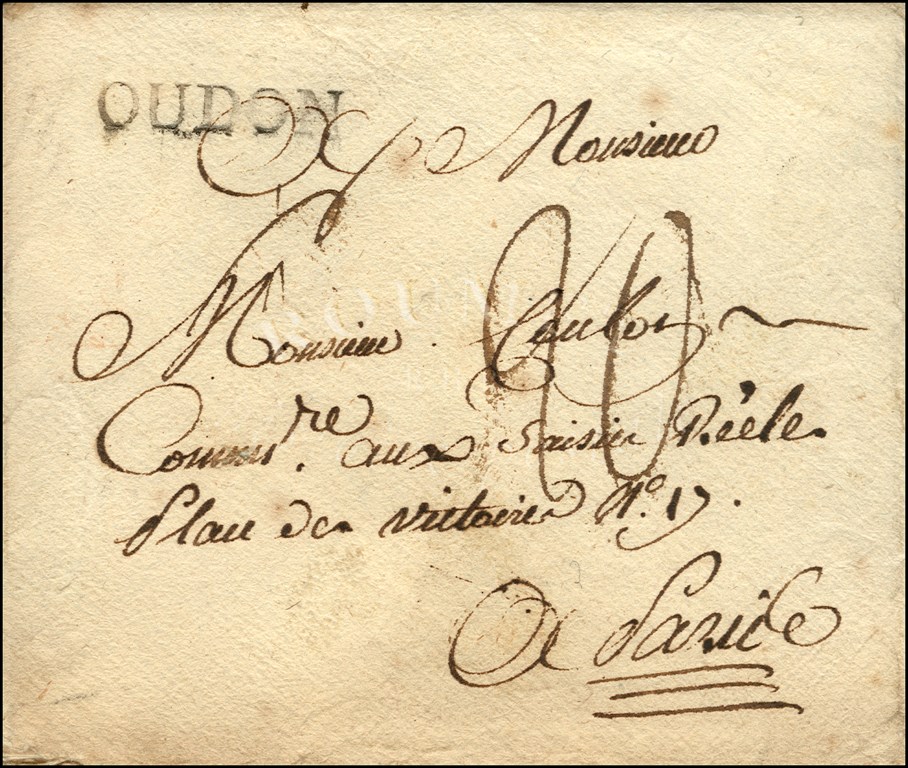 OUDON
A Monsieur
Monsieur Coulon
Commre. aux Saisies Réeles
Place des victoires No. 17.
10
A Paris
ROUMET